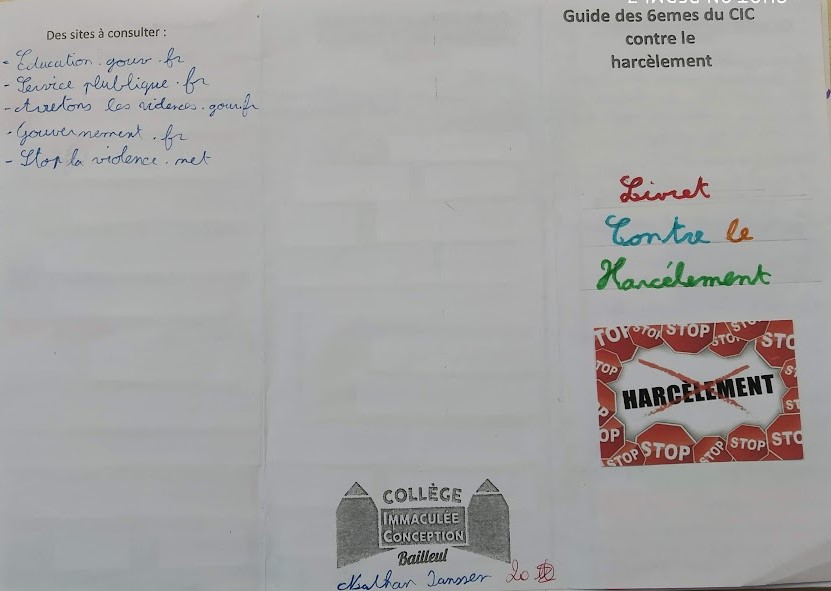 Des sites à consulter :
- Education.gouv.fr
- Service plublique.fr
- Arretons les violences.gouv.fr
- Gouvernement.fr
- Stop la violence.net
COLLÈGE
IMMACULÉE
CONCEPTION
Bailleul
Nathan Janssen 20
Guide des 6emes du CIC
contre le
harcèlement
Livret
Contre le
Harcélement
STOP STOP STOP
HARCÈLEMENT
STOP STOP STOP STOP